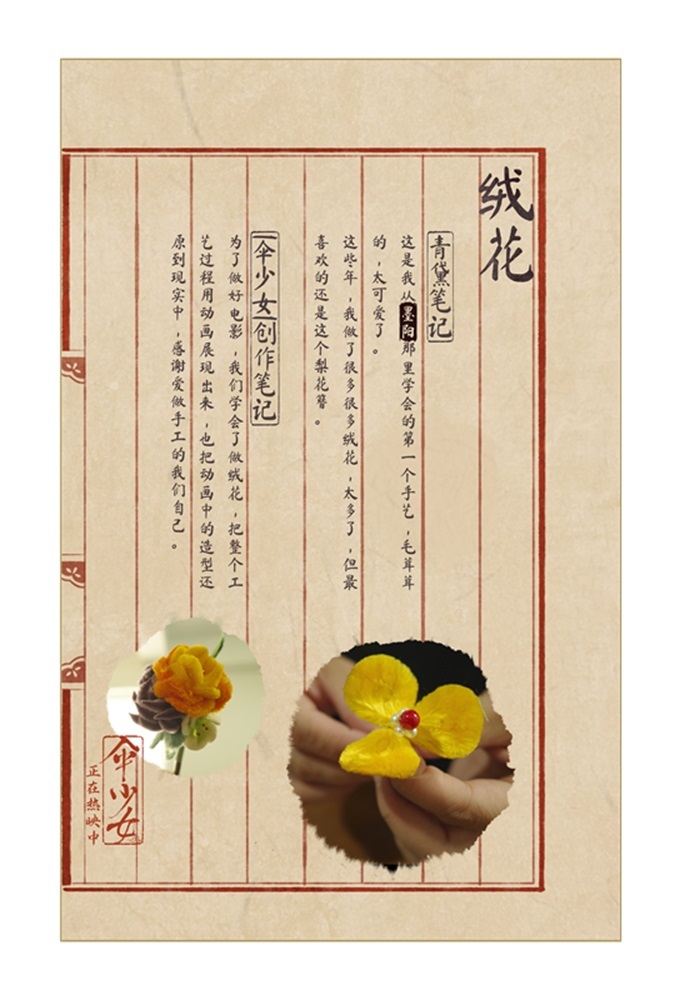 绒花
青黛笔记
这是我从墨阳那里学会的第一个手艺，毛茸茸
的，太可爱了。
这些年，我做了很多很多绒花，太多了，但最
喜欢的还是这个梨花簪。
伞少女创作笔记
为了做好电影，我们学会了做绒花，把整个工
艺过程用动画展现出来，也把动画中的造型还
原到现实中，感谢爱做手工的我们自己。
伞少女
正在热映中